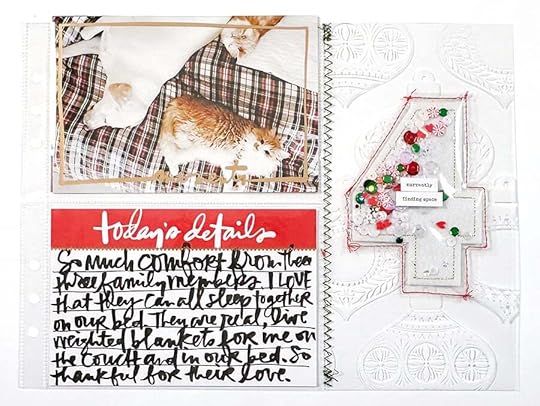 today's details
So much comfort from these
three family members. I LOVE
that they can all sleep together
on our bed. They are real, live
weighted blankets for me on
the couch and in our bed. So
thankful for their love.
currently
finding space